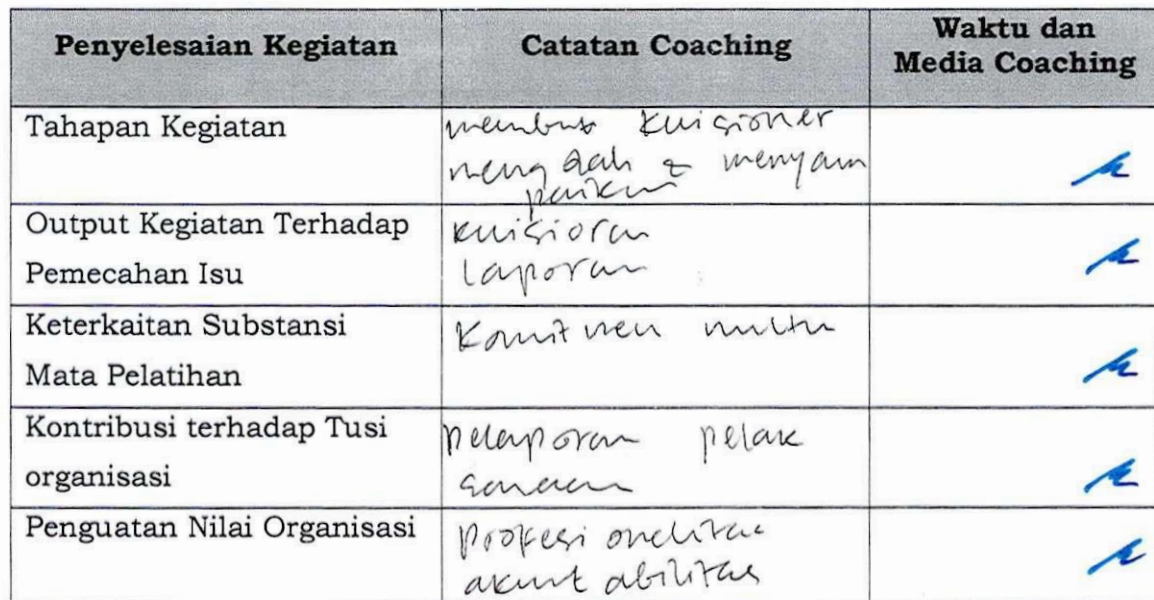 Penyelesaian Kegiatan
Catatan Coaching
Waktu dan
Media Coaching
Tahapan Kegiatan
membuat kuisioner
mengolah & menyam
paikan
Output Kegiatan Terhadap
Pemecahan Isu
kuisioran
laporan
Keterkaitan Substansi
Mata Pelatihan
Komitmen mutu
Kontribusi terhadap Tusi
organisasi
pelaporan pelak
sanaan
Penguatan Nilai Organisasi
Profesionalitas
akuntabilitas